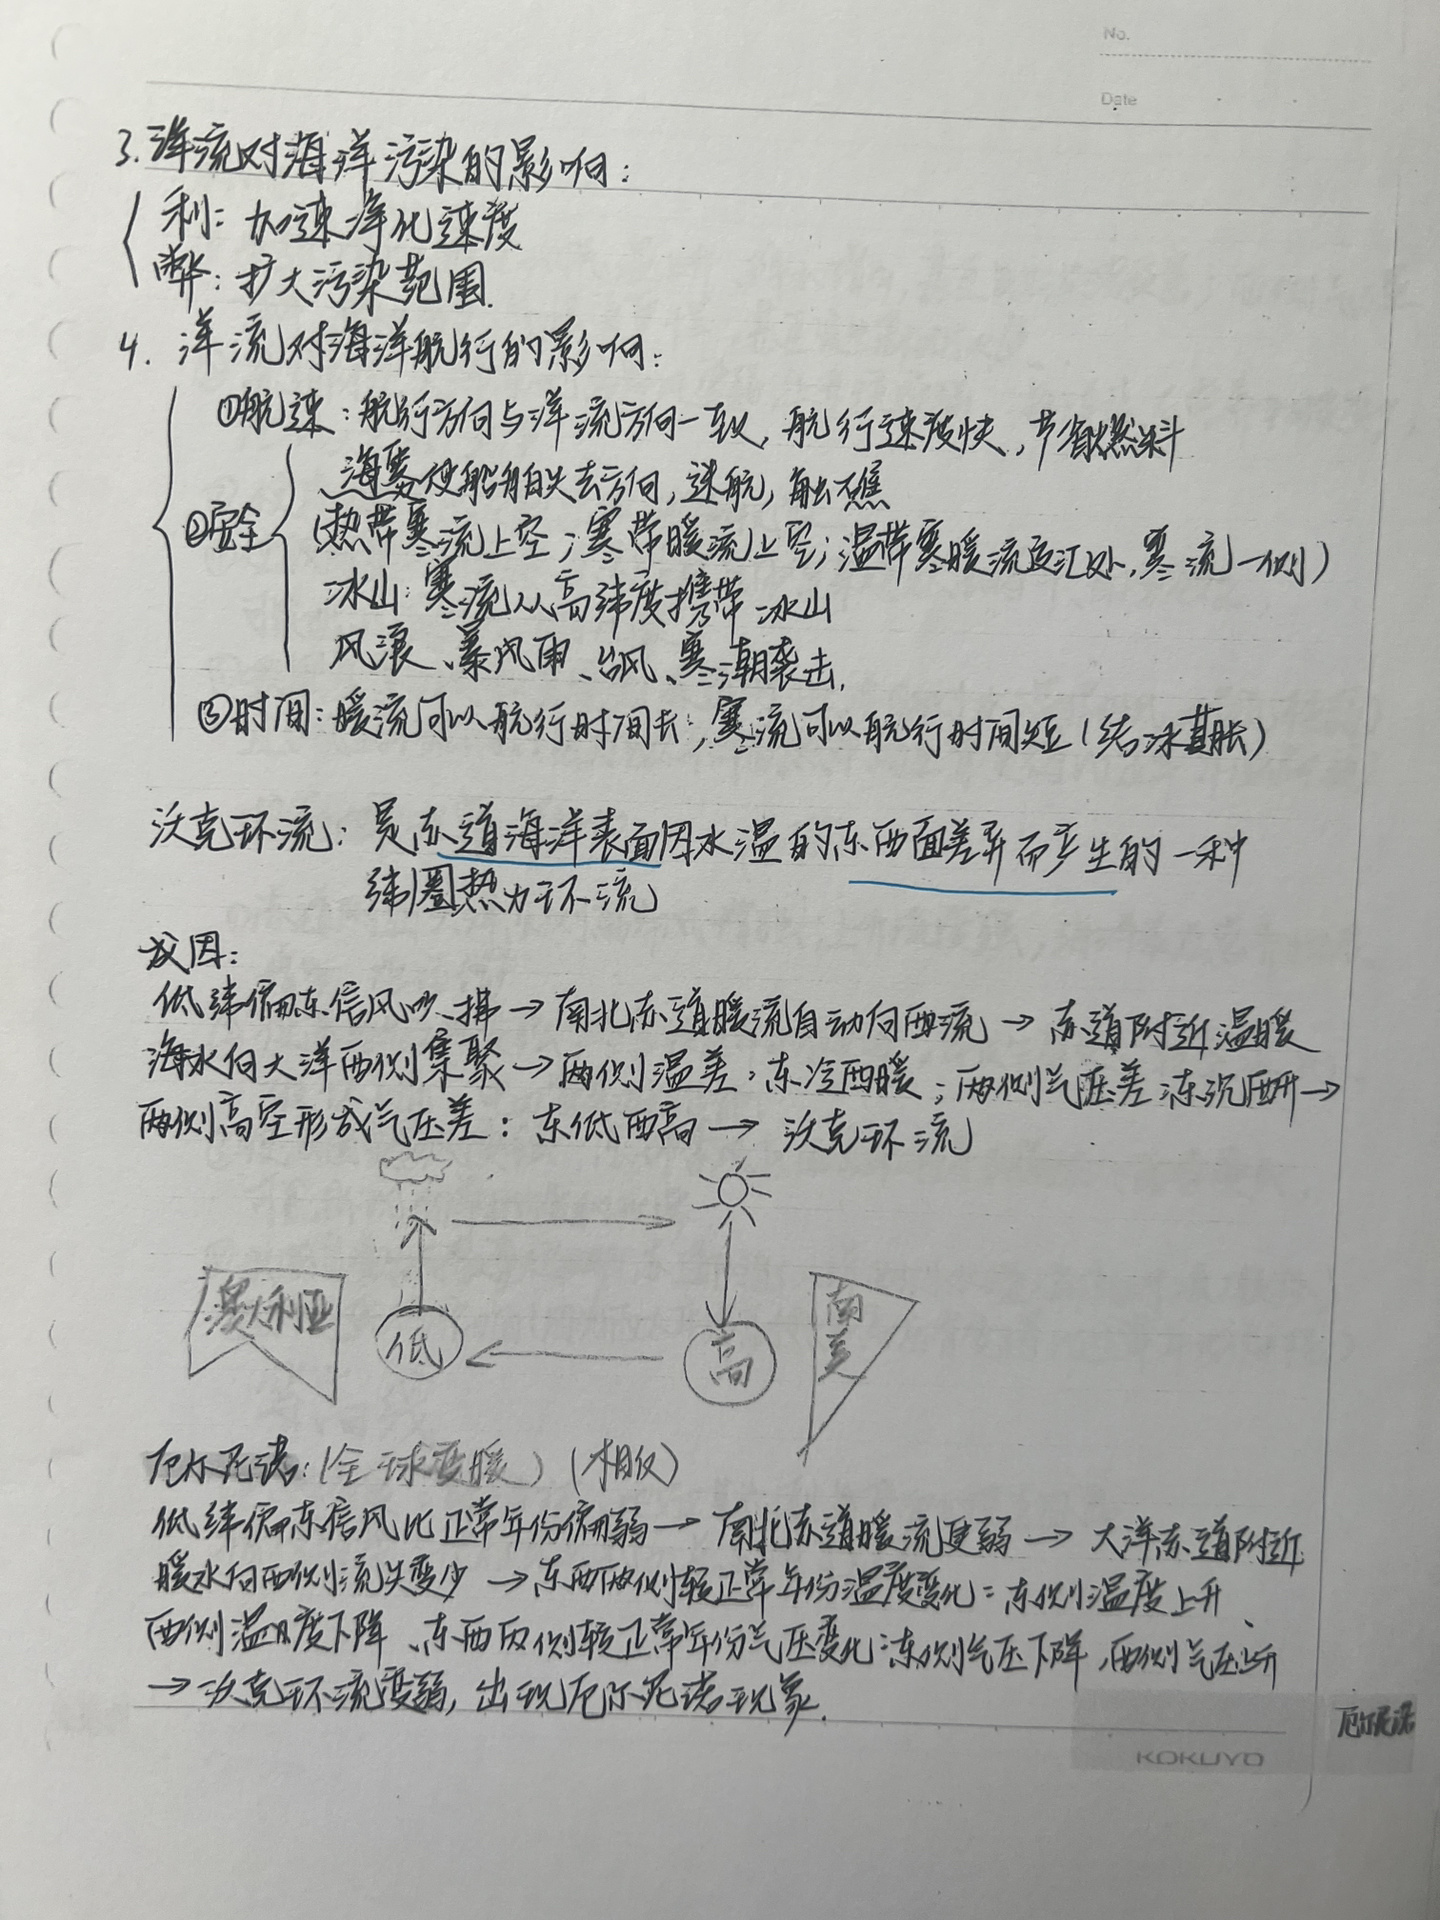 No.
Date
3.洋流对海洋污染的影响:
利:加速净化速度
弊:扩大污染范围.
4.洋流对海洋航行的影响:
①航速:航行方向与洋流方向一致,航行速度快,节省燃料
②安全
海雾使船舶失去方向,迷航,触礁
(热带寒流上空;寒带暖流上空;温带寒暖流交汇处,寒流一侧)
冰山:寒流从高纬度携带冰山
风浪、暴风雨、台风、寒潮袭击.
③时间:暖流可以航行时间长,寒流可以航行时间短(结冰期长)
沃克环流:是赤道海洋表面因水温的东西面差异而产生的一种
纬圈热力环流
成因:
低纬偏东信风吹拂→南北赤道暖流自动向西流→赤道附近温暖
海水向大洋西侧集聚→两侧温差:东冷西暖;两侧气压差:东沉西升→
两侧高空形成气压差:东低西高→沃克环流
澳大利亚
低
高
南美
厄尔尼诺:(全球变暖)(相反)
低纬偏东信风比正常年份偏弱→南北赤道暖流更弱→大洋赤道附近
暖水向西侧流失变少→东西两侧较正常年份温度变化:东侧温度上升
西侧温度下降、东西两侧较正常年份气压变化:东侧气压下降,西侧气压上升
→沃克环流变弱,出现厄尔尼诺现象.
厄尔尼诺
KOKUYO